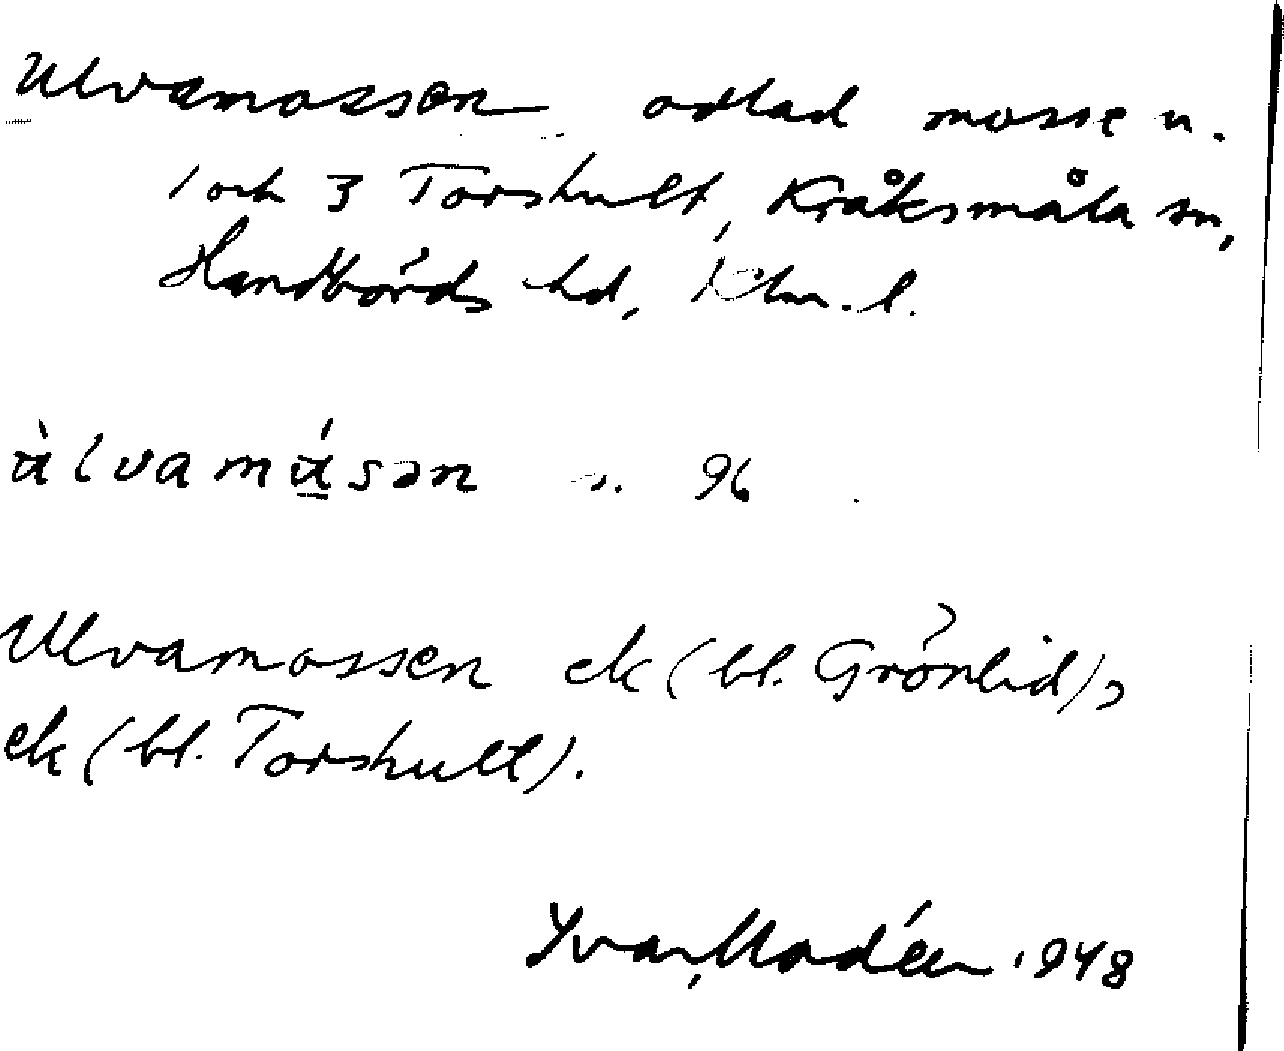 Ulvamossen, odlad mosse u.
1 och 3 Torshult, Kråksmåla sn,
Handbörds hd, Klm. l.
ùlvamúsən s. 96
Ulvamossen ek (bl. Grönlid),
ek (bl. Torshult).
Yvar Modéer 1948